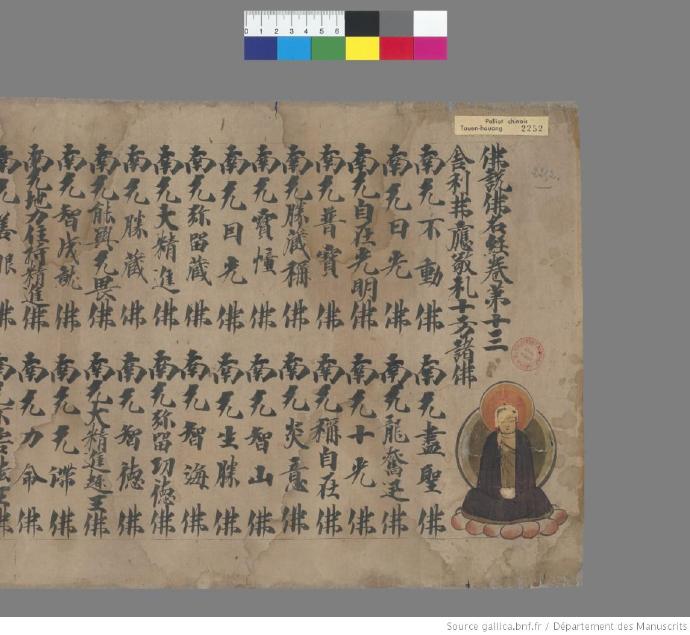 佛說佛名經卷第十三
舍利弗應敬礼十方諸佛
南无不動佛 南无盡聖佛
南无日光佛 南无龍奮迅佛
南无自在光明佛 南无十光佛
南无普寶佛 南无稱自在佛
南无勝藏稱佛 南无炎意佛
南无寶幢佛 南无智山佛
南无生勝佛
南无弥留藏佛 南无智海佛
南无大精進佛 南无弥留功德佛
南无勝藏佛 南无智德佛
南无能與无畏佛 南无大精進趣王佛
南无智成就佛
南无地力住持精進佛 南无力命佛
南无善眼佛
Pelliot chinois
Touen-houang 2252
2252.
0 1 2 3 4 5 6
Source gallica.bnf.fr / Département des Manuscrits